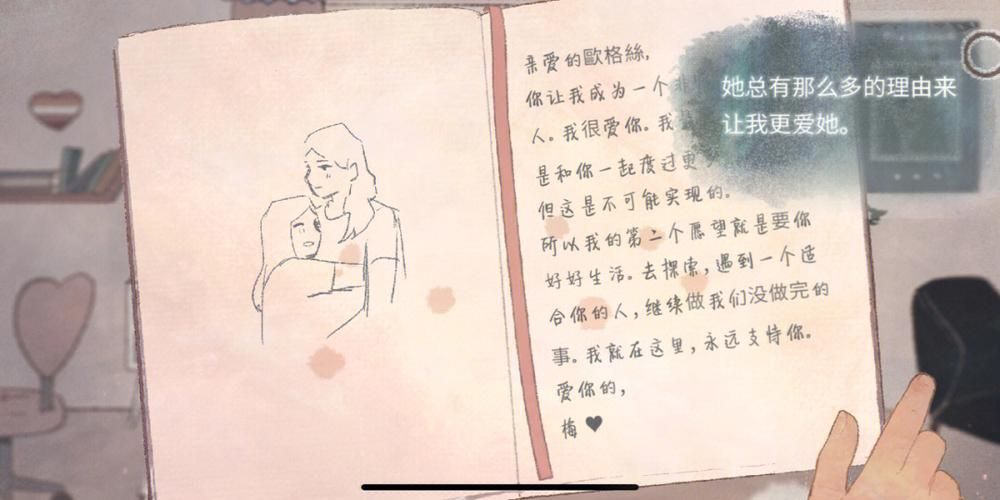 亲爱的歐格絲,
你让我成为一个
人。我很爱你。我
是和你一起度过更
但这是不可能实现的。
所以我的第二个愿望就是要你
好好生活。去探索,遇到一个适
合你的人,继续做我们没做完的
事。我就在这里,永远支持你。
爱你的,
梅♥
她总有那么多的理由来
让我更爱她。